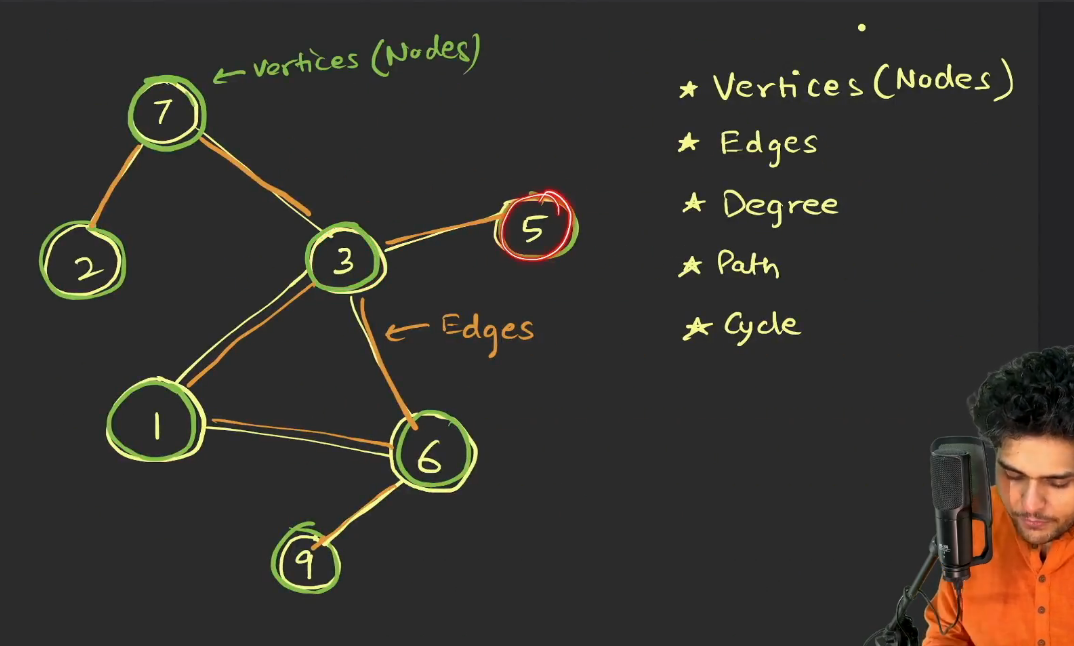 ← Vertices (Nodes)
7
2
3
5
← Edges
1
6
9
★ Vertices (Nodes)
★ Edges
★ Degree
★ Path
★ Cycle